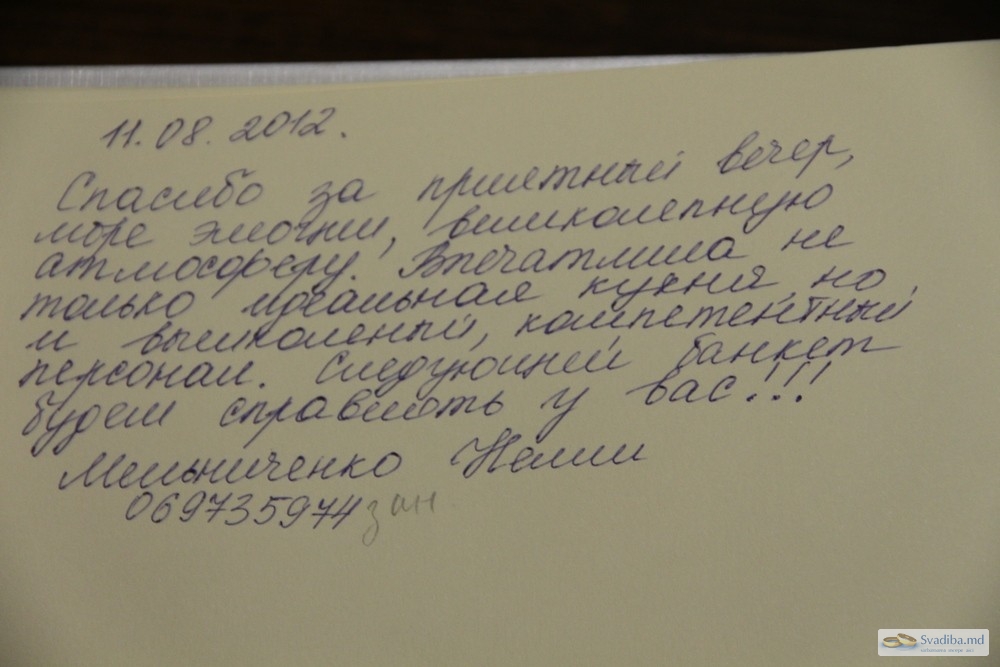 11.08.2012.
Спасибо за приятный вечер,
море эмоций, великолепную
атмосферу! Впечатлила не
только идеальная кухня, но
и вышколеный, компетентный
персонал. Следующий банкет
будем справлять у вас!!!
Мельниченко Нелли
069735974 зан
Svadiba.md